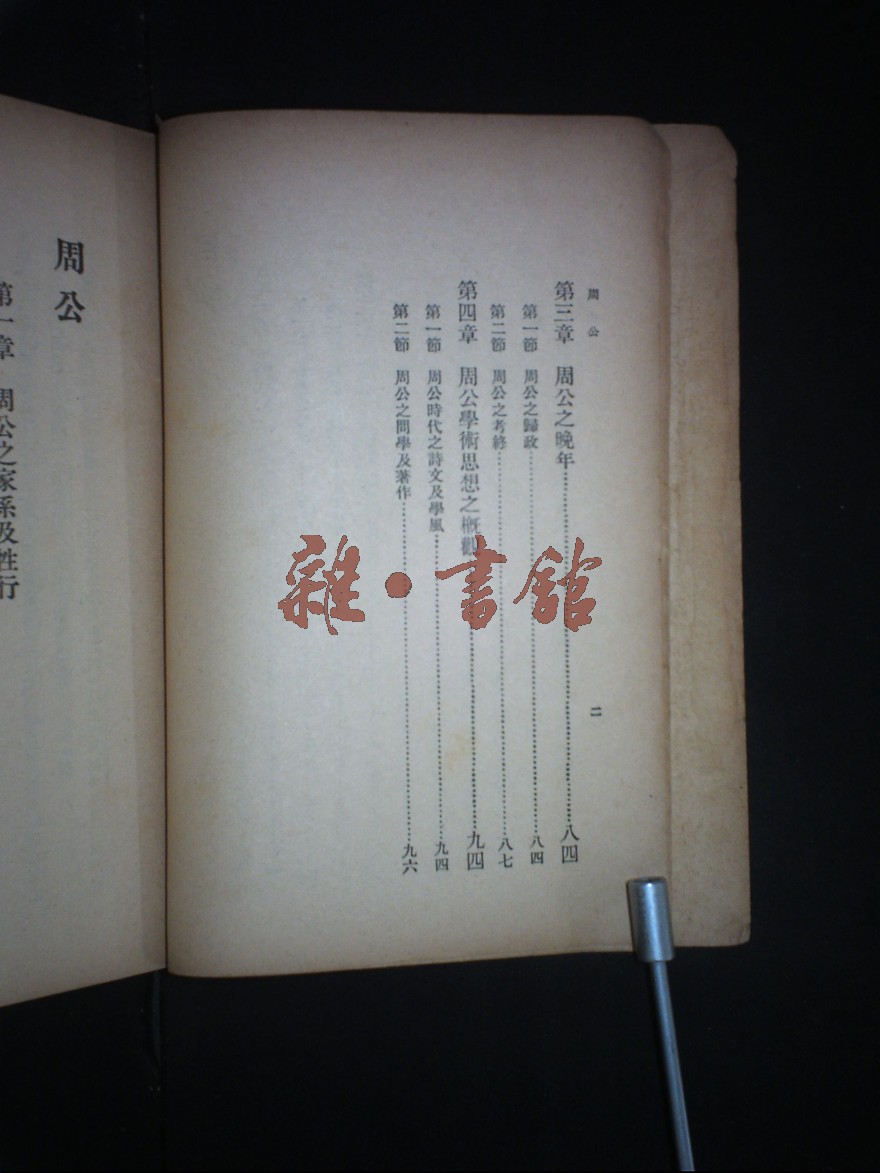 周公
第三章 周公之晚年……八四
第一節 周公之歸政……八四
第二節 周公之考終……八七
第四章 周公學術思想之概觀……九四
第一節 周公時代之詩文及學風……九四
第二節 周公之問學及著作……九六
二
周公
第一章 周公之家系及性行
雜·書館